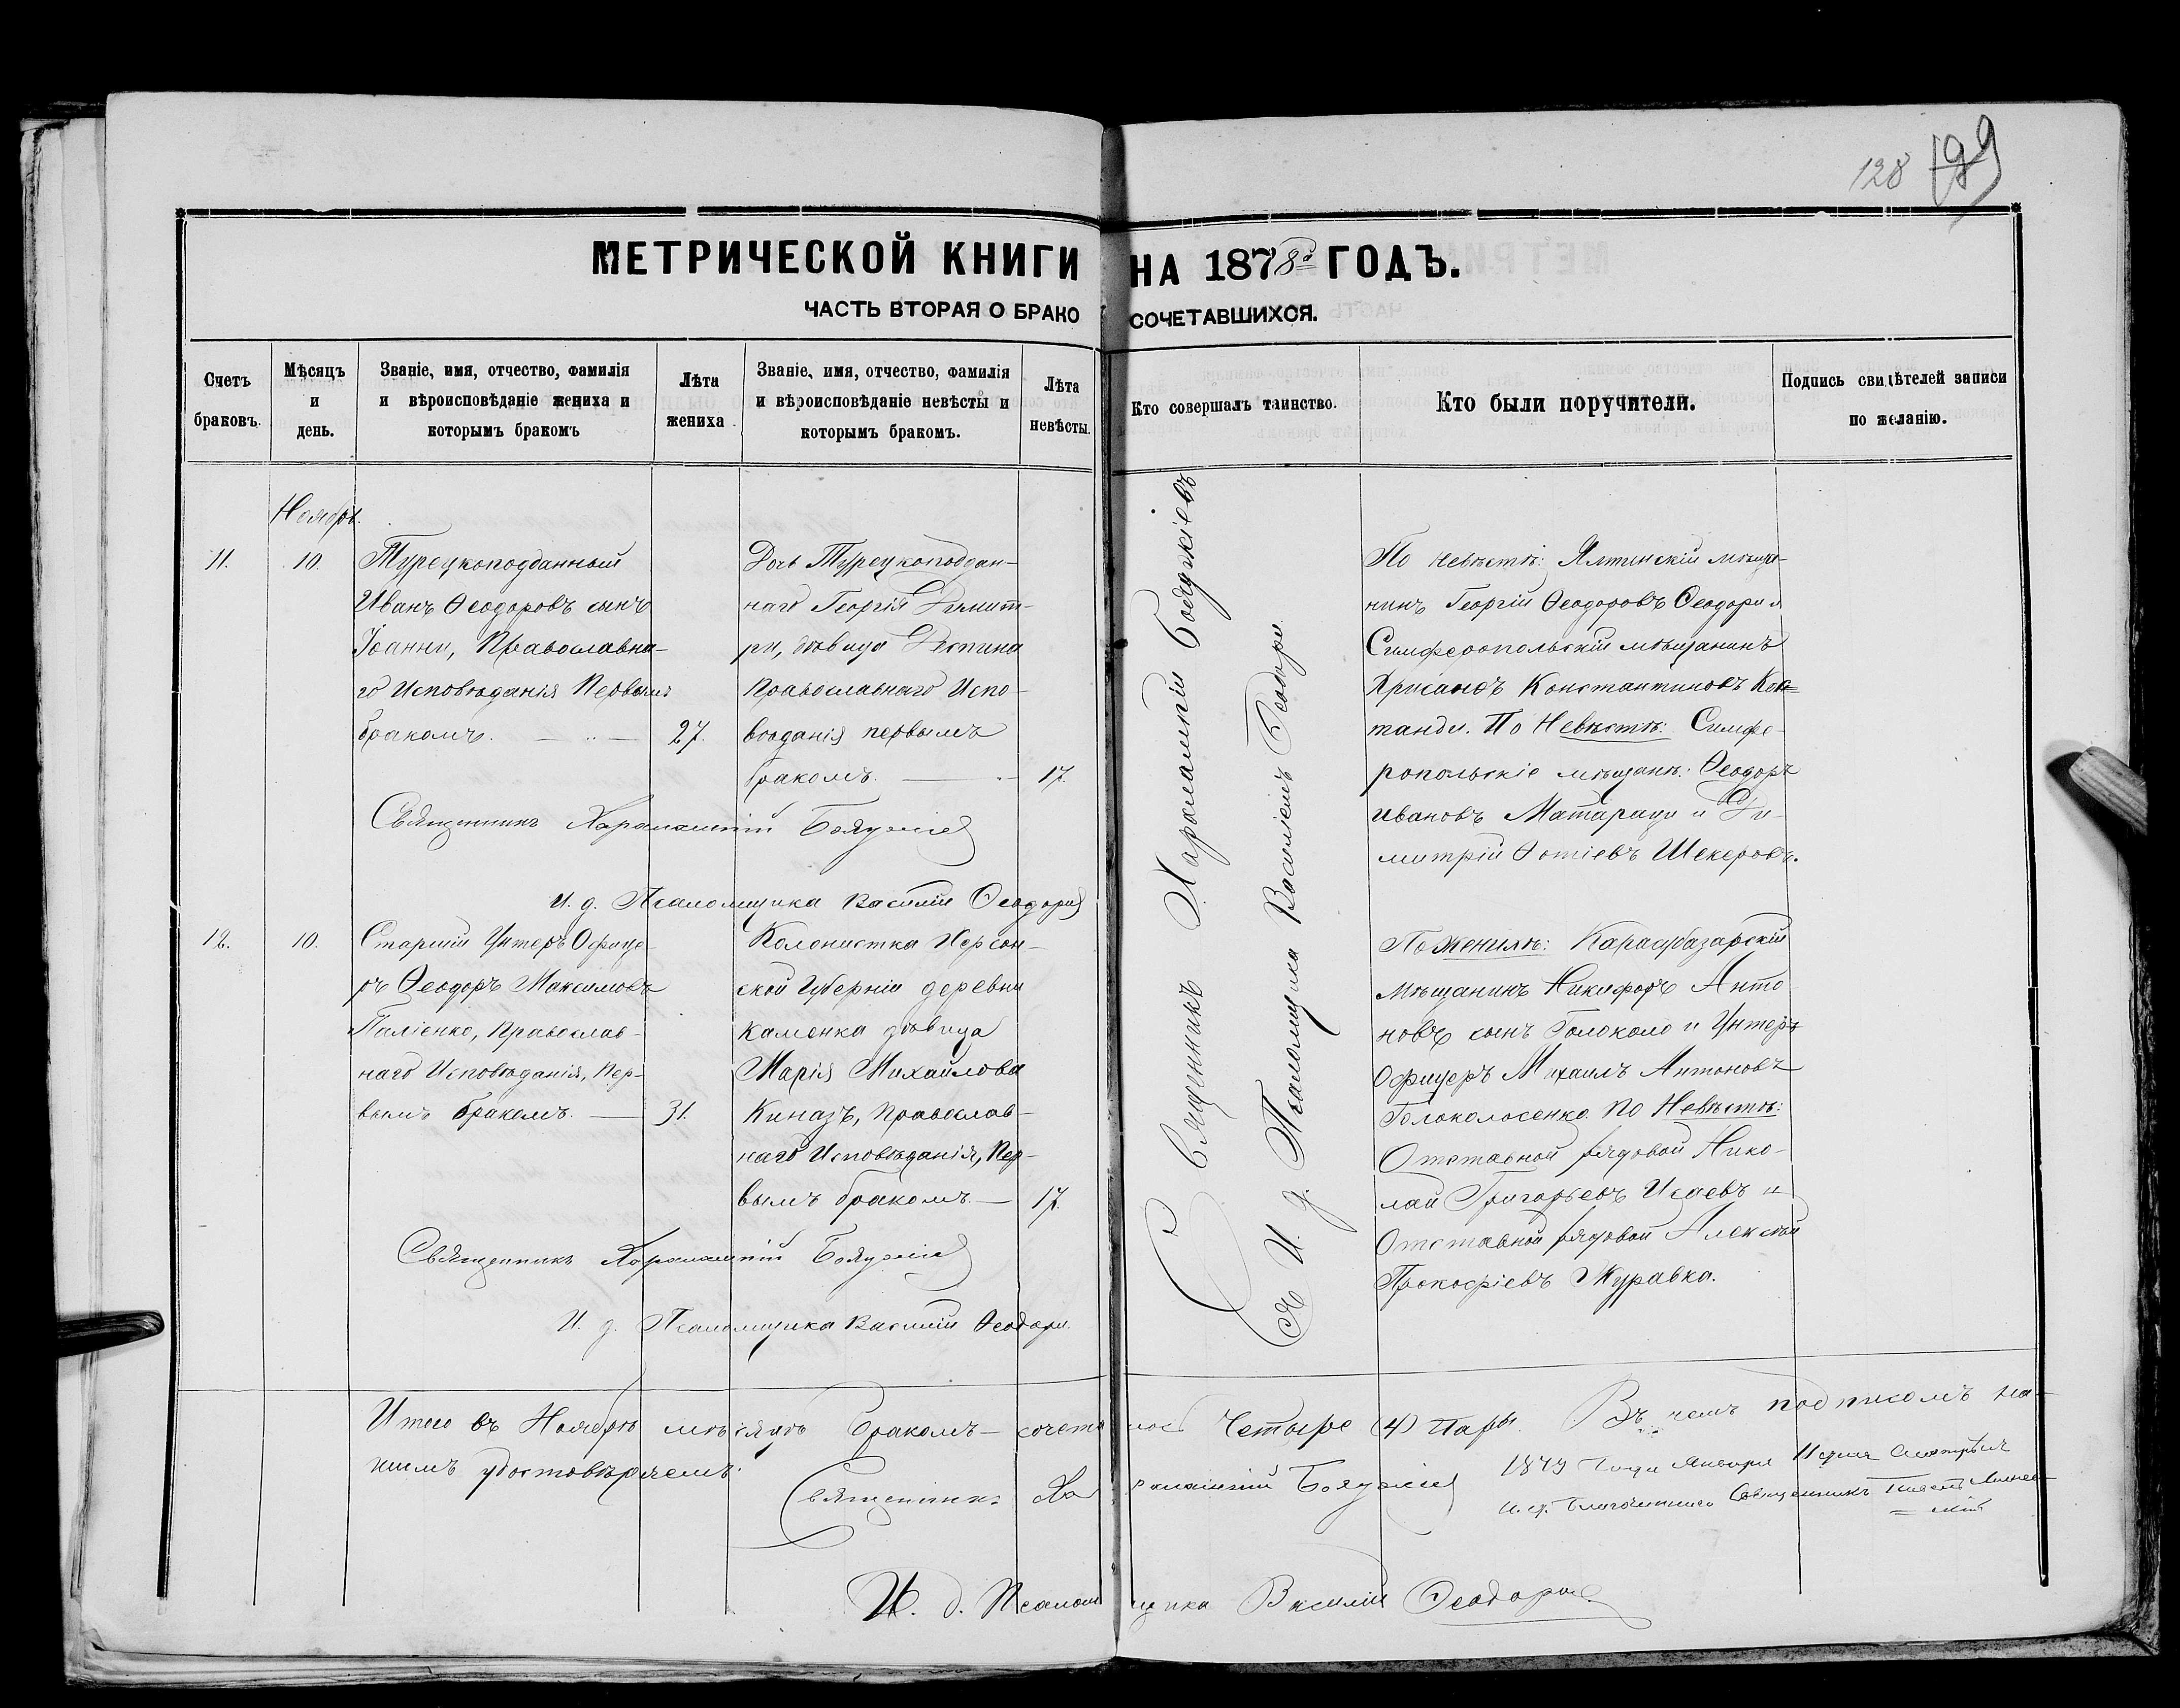 128 199
МЕТРИЧЕСКОЙ КНИГИ НА 1878й ГОДЪ.
ЧАСТЬ ВТОРАЯ О БРАКОСОЧЕТАВШИХСЯ.
Счетъ
браковъ.
Мѣсяцъ
и
день.
Званіе, имя, отчество, фамилія
и вѣроисповѣданіе жениха и
которымъ бракомъ
Лѣта
жениха
Званіе, имя, отчество, фамилія
и вѣроисповѣданіе невѣсты и
которымъ бракомъ.
Лѣта
невѣсты.
Кто совершалъ таинство.
Кто были поручители.
Подпись свидѣтелей записи
по желанію.
Ноябрь.
11. 10.
Турецкоподданный
Иванъ Ѳеодоровъ сынъ
Іоанни, Православна-
го Исповѣданія Первымъ
бракомъ. 27.
Дочь Турецкоподдан-
наго Георгія Димит-
ри, дѣвица Деспина
Православнаго Испо-
вѣданія первымъ
бракомъ. 17.
Священникъ Харалампій
И. д. Псаломщика Василій Ѳеодори
По невѣстѣ: Ялтинскій мѣща-
нинъ Георгій Ѳеодоровъ Ѳеодори и
Симферопольскій мѣщанинъ
Хрисанѳъ Константиновъ Кон=
танди. По Невѣстѣ: Симфе-
ропольскіе мѣщане: Ѳеодоръ
Ивановъ Матараци и Ди-
митрій Ѳотіевъ Шекеровъ.
12. 10.
Старшій Унтеръ Офице-
ръ Ѳеодоръ Максимовъ
Паліенко, Православ-
наго Исповѣданія, Пер-
вымъ бракомъ. 31.
Колонистка Херсон-
ской Губерніи деревни
Каменка дѣвица
Марія Михайлова
Киназъ, Православ-
наго Исповѣданія, Пер-
вымъ бракомъ. 17.
Священникъ Харалампій
И. д. Псаломщика Василій Ѳеодори.
По женихѣ: Карасубазарскій
Мѣщанинъ Никифоръ Анто
новъ сынъ Голоколо и Унтеръ
Офицеръ Михаилъ Антоновъ
Голоколосенко. По Невѣстѣ:
Отставной рядовой Нико-
лай Григорьевъ Исаевъ и
Отставной рядовой Алексѣй
Прокофіевъ Журавка.
Священникъ Харалампій
И. д. Псаломщика Василій Ѳеодори.
Итого въ Ноябрѣ мѣсяцѣ бракомъ сочеталось Четыре (4) пары. Въ чемъ подписомъ на-
шимъ удостовѣряемъ:
Священникъ Харалампій
1879 Года Января
и. д. Благочиннаго Священникъ
И. д. Псаломщика Василій Ѳеодори.